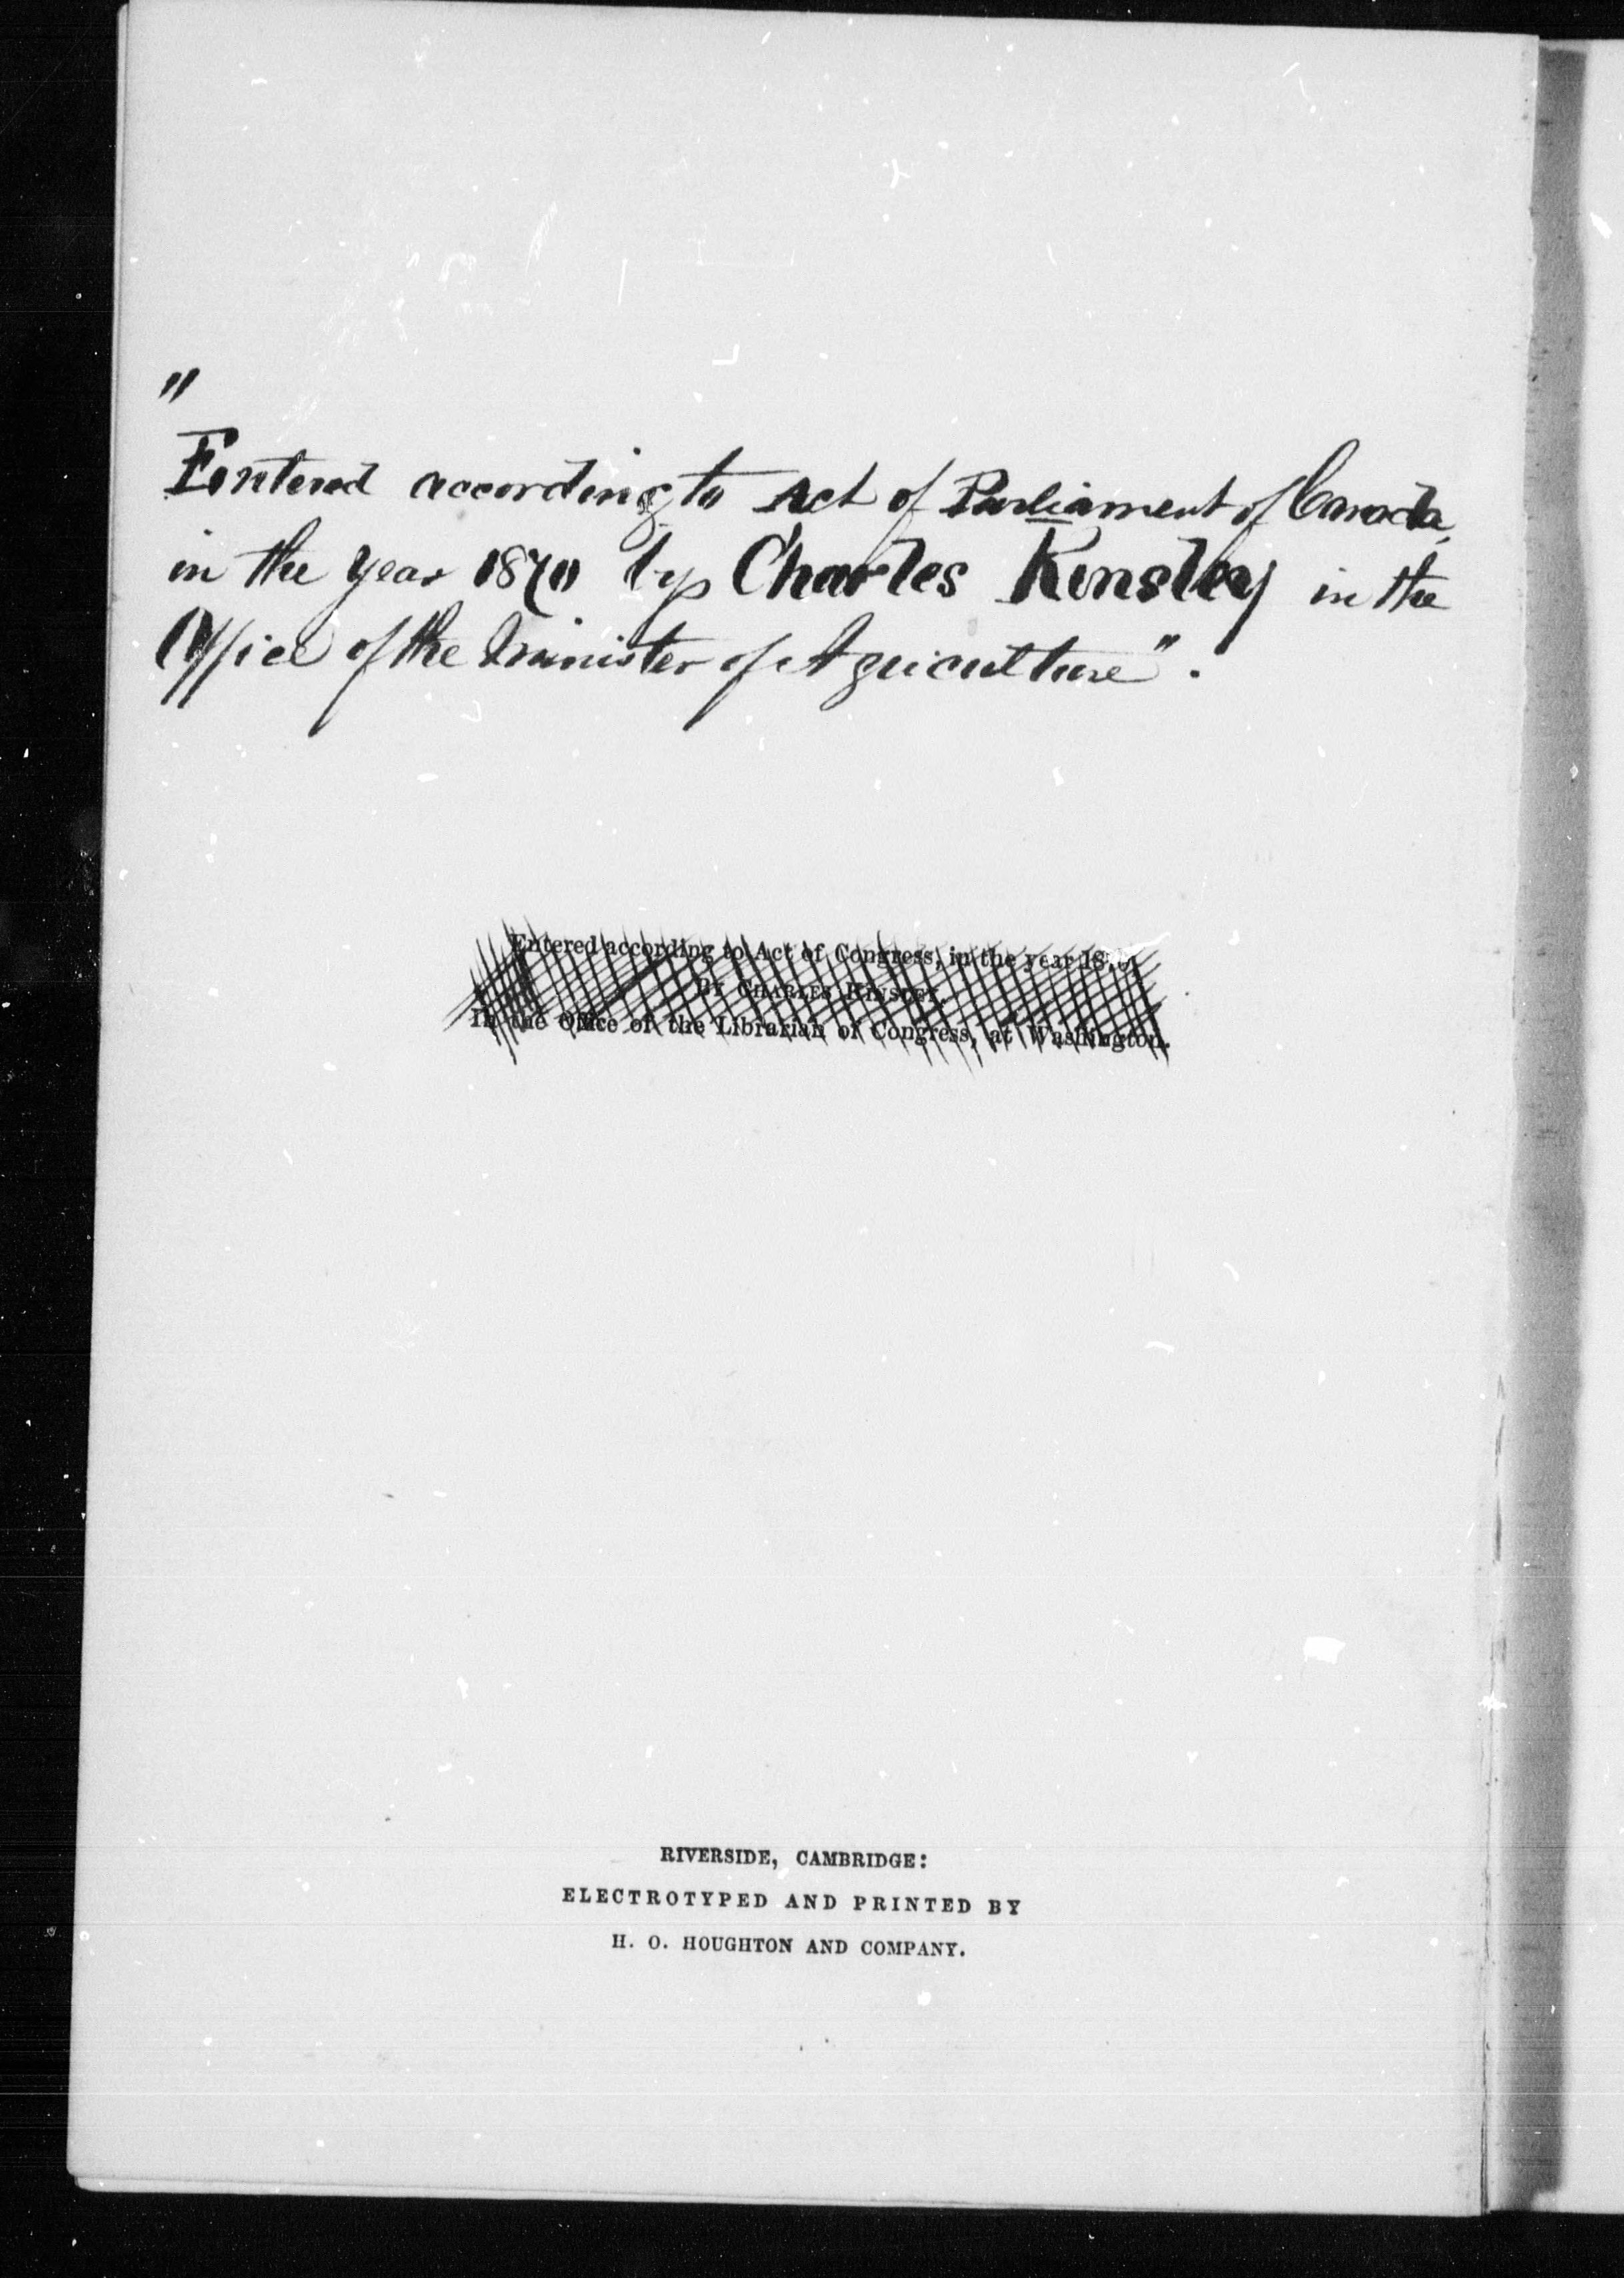 "
Entered according to Act of Parliament of Canada,
in the year 1870 by Charles Kinsley in the
Office of the Minister of Agriculture".
Entered according to Act of Congress, in the year
By Charles Kinsley,
In the Office of the Librarian of Congress, at Washington.
RIVERSIDE, CAMBRIDGE:
ELECTROTYPED AND PRINTED BY
H. O. HOUGHTON AND COMPANY.